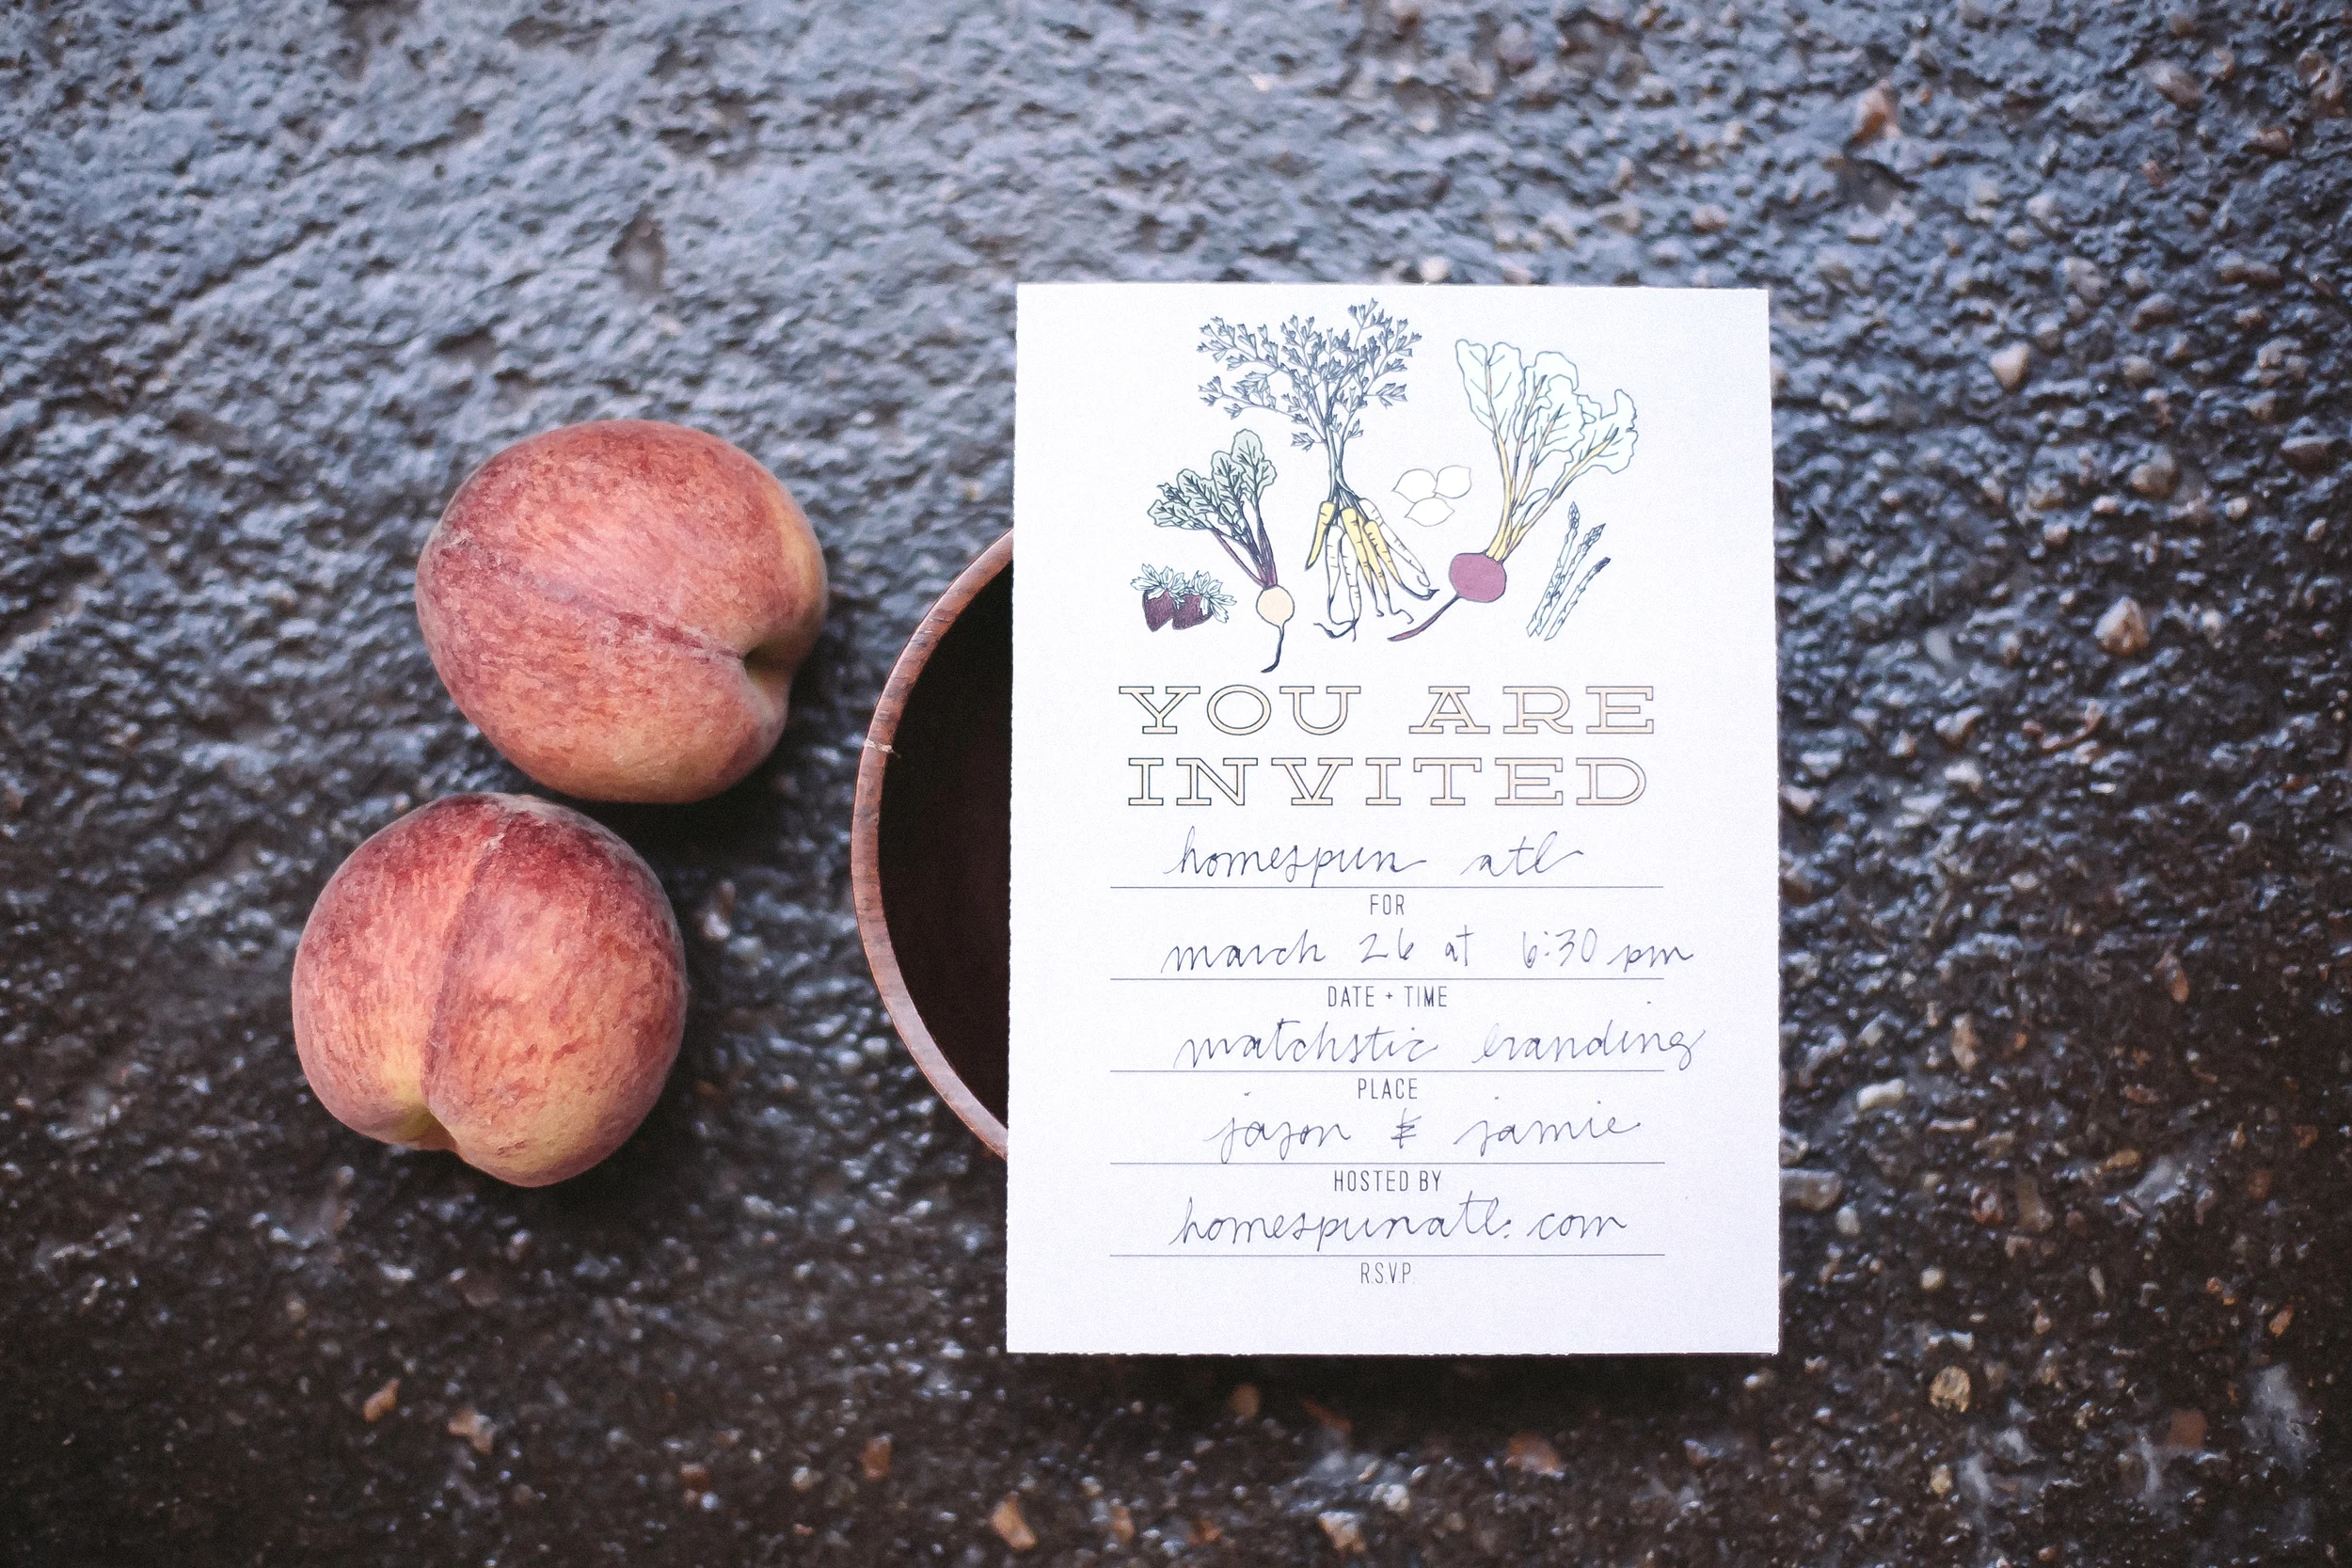 YOU ARE
INVITED
homespun atl
FOR
march 26 at 6:30 pm
DATE + TIME
matchstic branding
PLACE
jason & jamie
HOSTED BY
homespunatl.com
R.S.V.P.